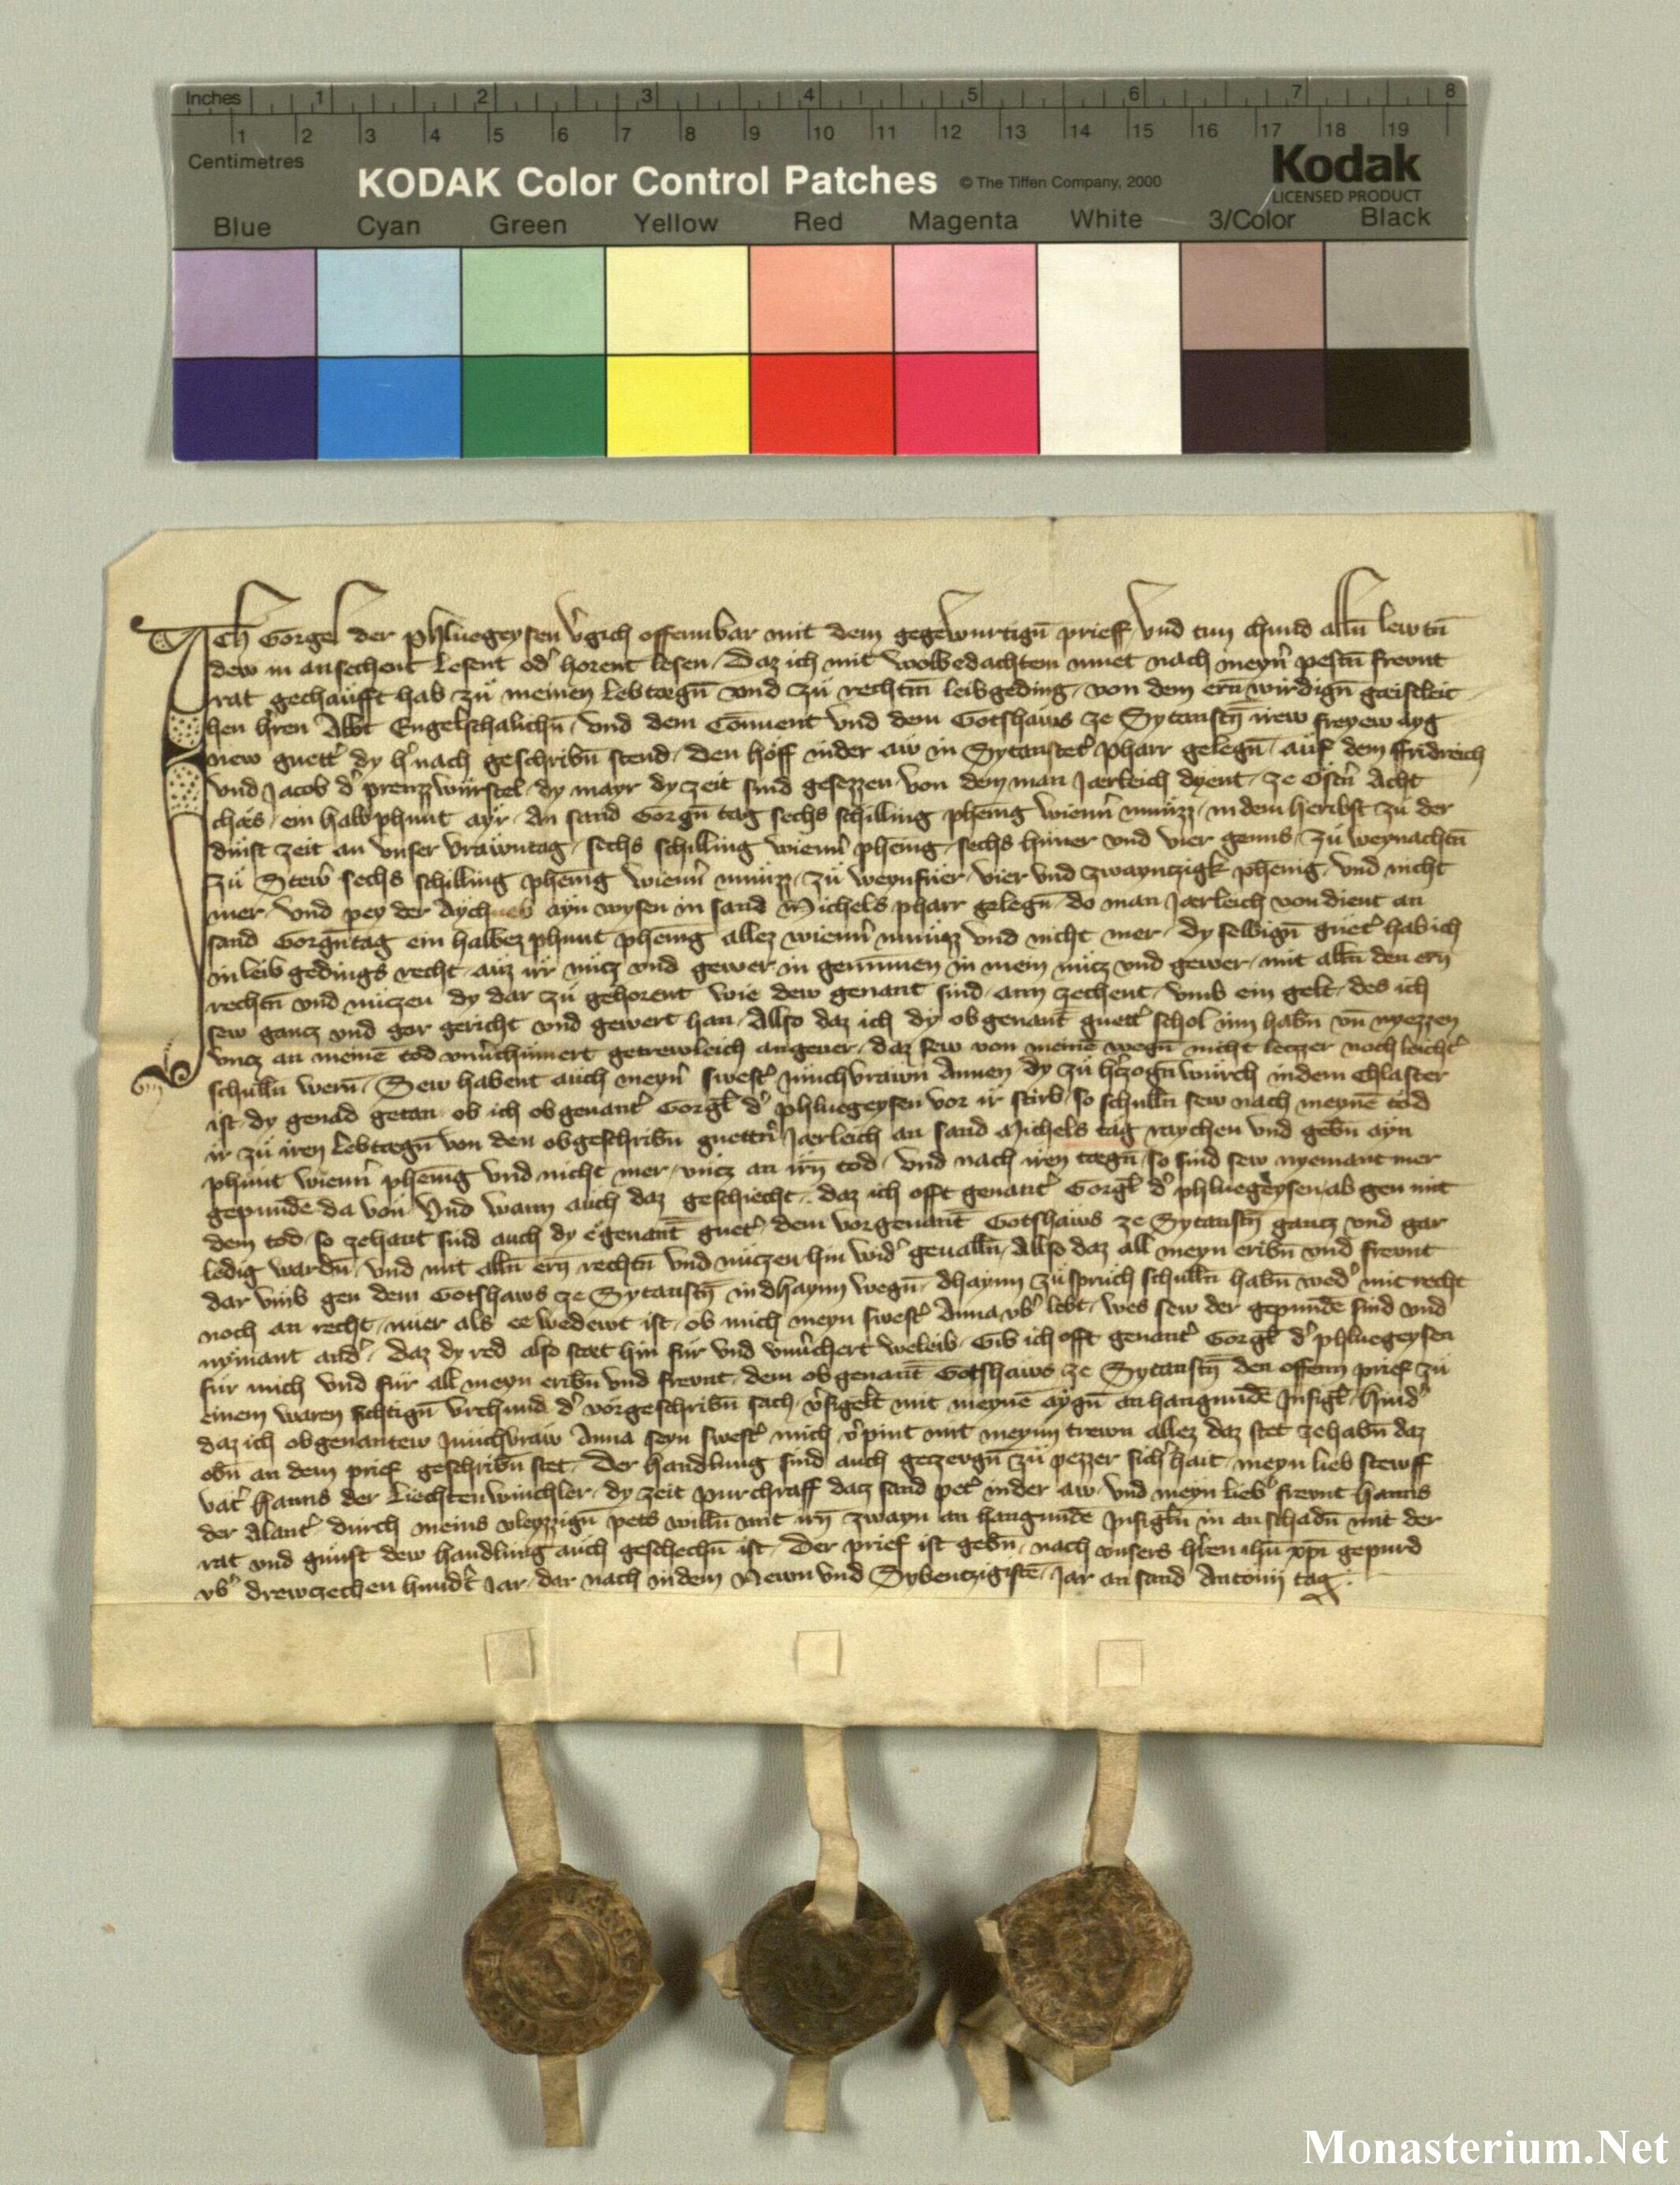 Inches 1 2 3 4 5 6 7 8
1 2 3 4 5 6 7 8 9 10 11 12 13 14 15 16 17 18 19
Centimetres
KODAK Color Control Patches © The Tiffen Company, 2000 Kodak
LICENSED PRODUCT
Blue Cyan Green Yellow Red Magenta White 3/Color Black
Ich Görgel der phluegeysen v̓gich offennbar mit dem gegeẅurtign̄ prieff vnd tun chund alln̄ lewtn̄
dew in ansechent lesent od̓ horent lesen, Daz ich mit wolbedachtem muet nach meyn̓ pestn̄ frevnt
rat gechaufft hab zü meinen lebtægn̄ vnd zü rechtm̄ leibgeding, von dem ern̄wirdign̄ gæistleic
hen h̓ren Abbt Engelschalichn̄, vnd dem Conuent vnd dem Gotshaws ze Sytanstn̄ irew freyew ayg
new guett̓ dy h̓nach geschribn̄ stend, den hoff inder aw in Sytanstet̓ pharr gelegn̄, auf dem ffridreich
vnd Jacob d̓ prenzzwürstel, dy mayr dy zeit sind gesezzen, von dem man Jærleich dyent, ze Ostn̓ Acht
chæs, ein halb phunt ayr, An sand Görgn̄ tag sechs schilling phenīg wienn̓ münzz, in dem heribst zü der
dinst zeit an vnser vrawntag, sechs schilling wienn̓ phenīg, sechs hüner vnd vier genns, zü weynachtn̄
zü Stew̓ sechs schilling phenīg wienn̓ münzz, zü weynfuer, vier vnd zwaynczigk phenīg, vnd nicht
mer, vnd pey der Aych ayn wysen in sand Michels pharr gelegn̄, do man Jærleich von dient an
sand Görgn̄tag ein halbez phunt phenīg allez wienn̓ münzz vnd nicht mer, dy selbign̄ guet̓ hab ich
in leib gedings recht, auz irr nücz vnd gewer, in genummen in mein nücz vnd gewer, mit alln̄ den ern̄
rechtn̄ vnd nüczen dy dar zü gehorent wie dew genant sind, ann zechent, vmb ein gelt, des ich
sew gancz vnd gar gericht vnd gewert han, Allso daz ich dy obgenant̄ guett̓ schol inn habn̄ vn̄ nyezzen
vncz an meinē tod vnu̓chümert getrewleich angeuer, daz sew von meinē wegn̄ nicht leczer noch leicht̓
schulln̄ wern̄, Sew habent auch meyn̓ swest̓ junchvrawn Annen dy zü h̓czogn̄würch indem Chlaster
ist, dy genad getan, ob ich obgenant̓ Görgl̄ d̓ phluegeysen vor ir stirb, so schulln̄ sew nach meynē tod
ir zü iren lebtægn̄ von den obgeschribn̄ guettn̓ Jærleich an sand Michels tag raychen vnd gebn̄ ayn
phunt wienn̓ phenīg vnd nicht mer, vncz an irn̄ tod, vnd nach iren tægn̄, so sind sew nyemant mer
gepundē da von, Vnd wann auch daz geschiecht, daz ich offt genant̓ Görgl̄ d̓ phluegeysen ab gen mit
dem tod, so zehant sind auch dy egenant̄ guet̓, dem vorgenant̄ Gotshaws ze Sytanstn̄ gancz vnd gar
ledig wardn̄, vnd mit alln̄ ern̄ rechtn̄ vnd nüczen hin wid̓ geualln̄, Allso daz all meyn eribn̄ vnd frevnt
dar vmb gen dem Gotshaws ze Sytanstn̄ indhaynn wegn̄, dhaynn züspruch schulln̄ habn̄ wed̓ mit recht
noch an recht, nüer als ee wedewt ist, ob mich meyn swest̓ Anna vb̓ lebt, wes sew der gepundē sind vnd
nymant and̓, daz dy red also stæt hin für vnd vnu̓chert weleib, Gib ich offt genant̓ Görgl̄ d̓ phluegeysen
für mich vnd für all meyn eribn̄ vnd frevnt, dem obgenant̄ Gotshaws ze Sytanstn̄ den offenn prief zü
einem waren sichtign̄ vrchund d̓ vorgeschribn̄ sach, v̓sigelt mit meynē aygn̄ anhangundē Insigl̄, hind̓
daz ich obgenantew junchvraw Anna seyn swest̓ mich v̓pint mit meynn trewn allez daz stet zehabn̄ daz
obn̄ an dem prief geschribn̄ stet, Der handlung sind auch geczevgn̄ zü pezzer sich̓hait, meyn lieb stewff
vat̓ Hanns der Liechtenwinchler, dy zeit purchraff dacz sand pet̓ inder aw, vnd meyn lieb̓ frevnt hanns
der Alant̓ durch meins vleyzzign̄ pets willn̄ mit irn̄ zwayn an hangundē Insigln̄ in an schadn̄ mit der
rat vnd gunst dew handlung auch geschechn̄ ist, Der prief ist gebn̄, nach vnsers h̓ren ihū xpī gepurd
vb̓ drewczechen hundt̓ Jar, dar nach indem Newn vnd Sybenczigistē Jar an sand Antonij tag
Monasterium.Net